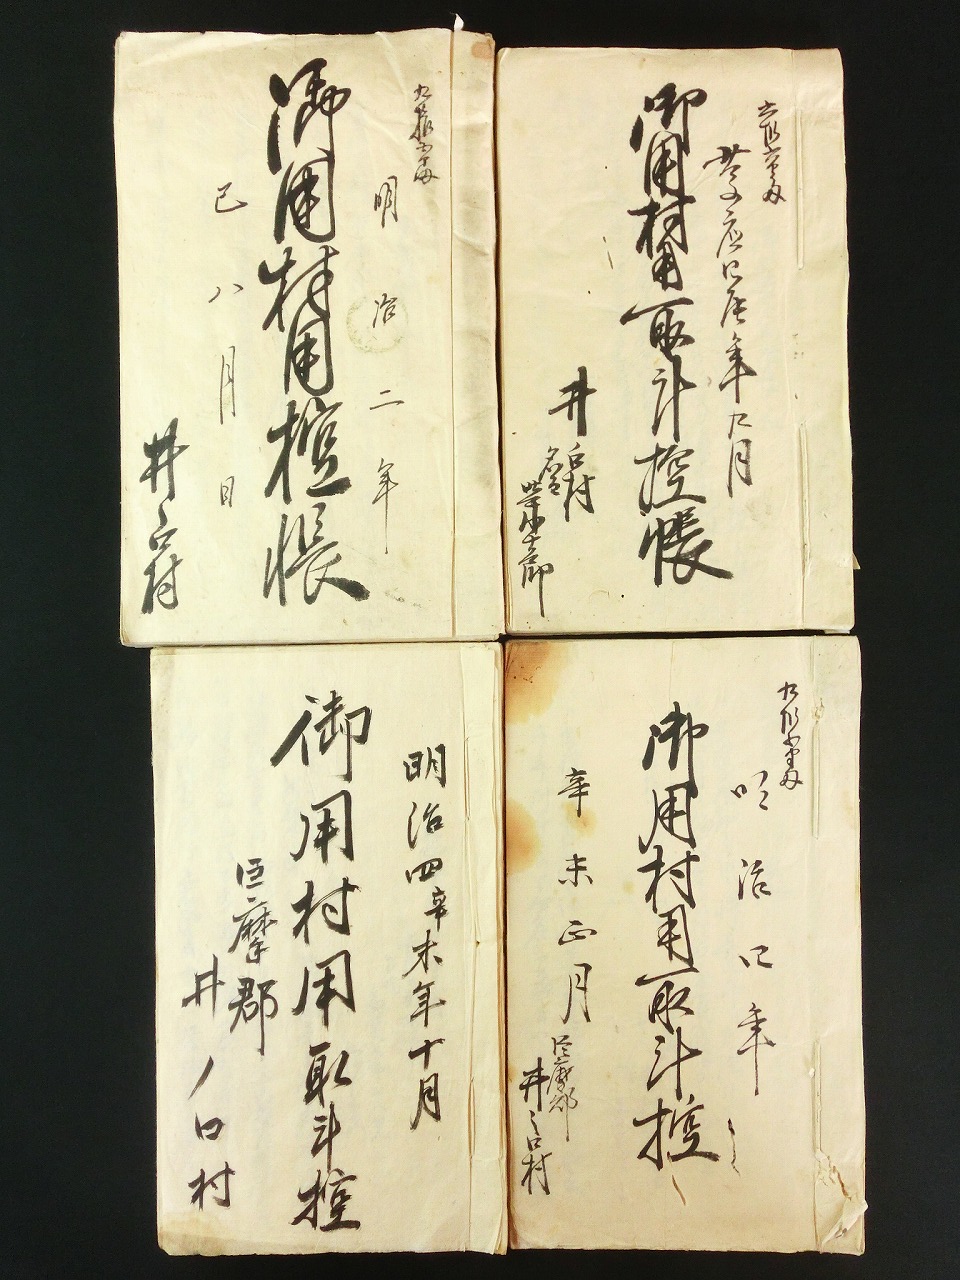 明治二年
御用村用控帳
巳八月日
井ノ口村
慶應四辰年九月
御用村用取斗控帳
井ノ口村
名主
明治四辛未年十月
御用村用取斗控
巨摩郡
井ノ口村
明治四年
御用村用取斗控
辛未正月
巨摩郡
井之口村